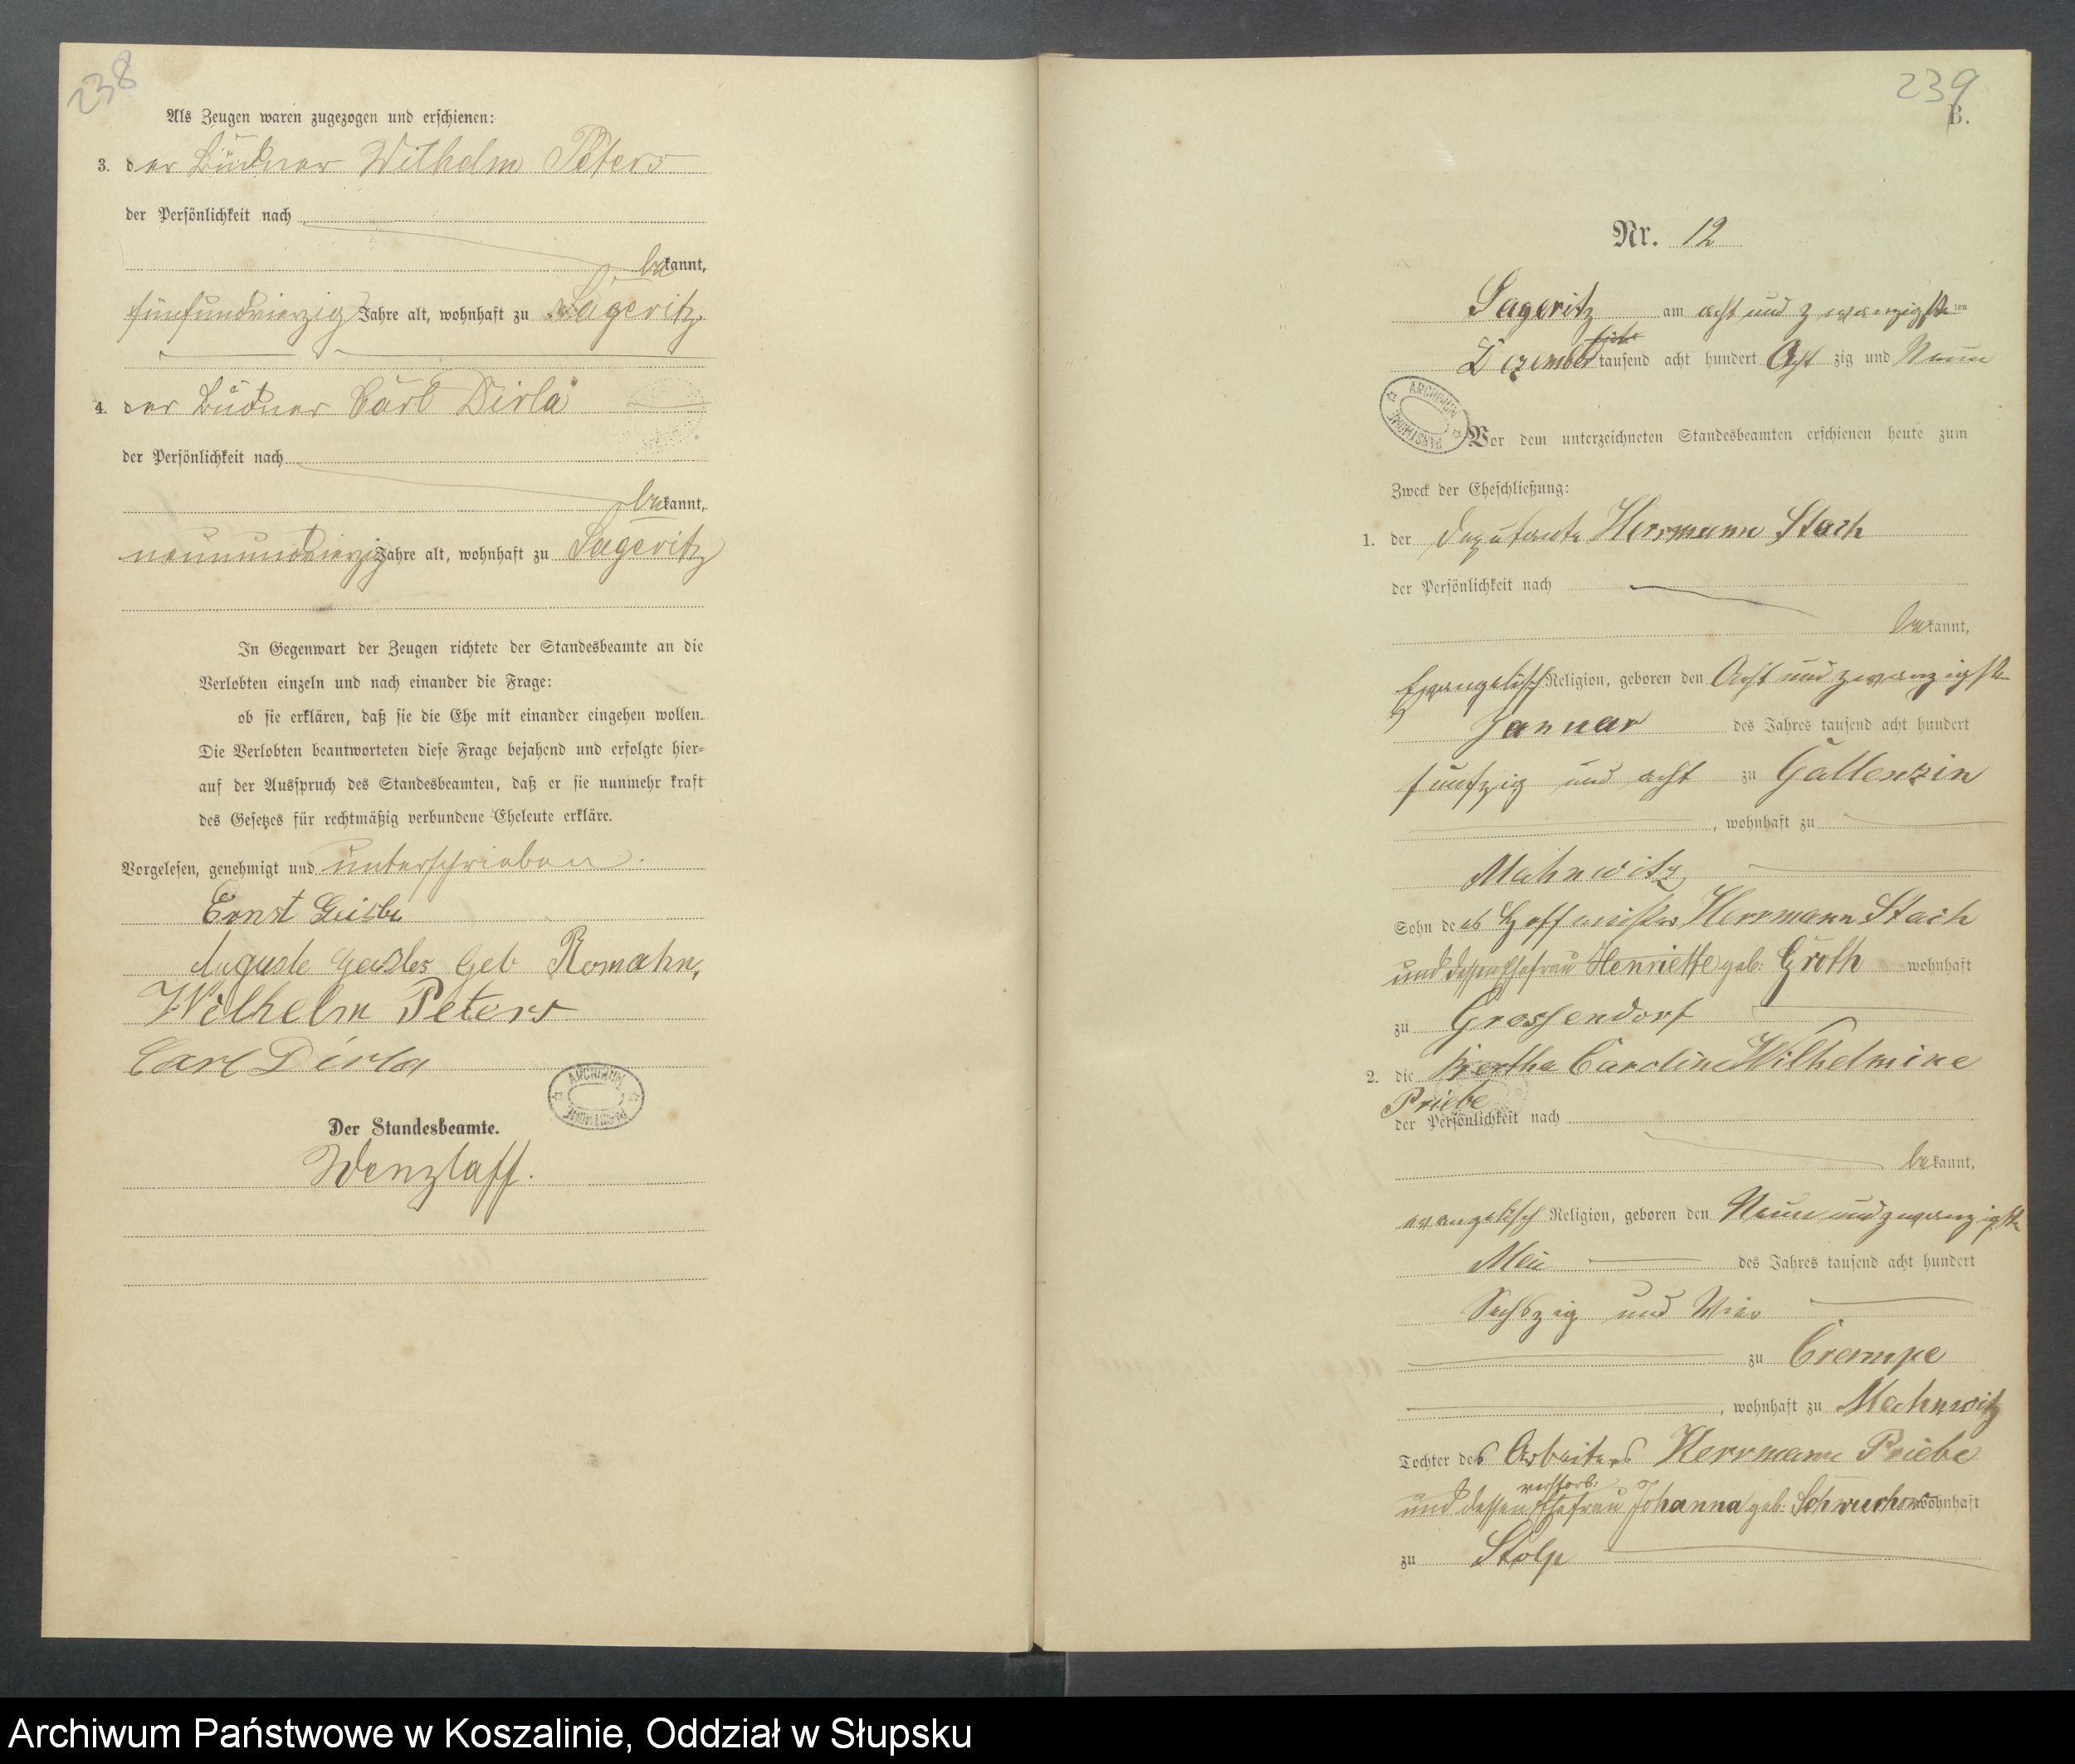 238
Als Zeugen waren zugezogen und erschienen:
3. der Büdner Wilhelm Peters
der Persönlichkeit nach
bekannt,
fünfundvierzig Jahre alt, wohnhaft zu Sageritz
4. der Büdner Carl Dirla
der Persönlichkeit nach
bekannt,
neunundvierzig Jahre alt, wohnhaft zu Sageritz
In Gegenwart der Zeugen richtete der Standesbeamte an die
Verlobten einzeln und nach einander die Frage:
ob sie erklären, daß sie die Ehe mit einander eingehen wollen.
Die Verlobten beantworteten diese Frage bejahend und erfolgte hier-
auf der Ausspruch des Standesbeamten, daß er sie nunmehr kraft
des Gesetzes für rechtmäßig verbundene Eheleute erkläre.
Vorgelesen, genehmigt und unterschrieben.
Ernst
Auguste Geb Romahn,
Wilhelm Peters
Carl Dirla
ARCHIWUM PAŃSTWOWE
Der Standesbeamte.
Wenzlaff.
239
B.
Nr. 12
Sageritz am acht und zwanzigsten
Dezember tausend acht hundert Acht zig und Neun
ARCHIWUM PAŃSTWOWE
Vor dem unterzeichneten Standesbeamten erschienen heute zum
Zweck der Eheschließung:
1. der Deputante Herrmann Stach
der Persönlichkeit nach
bekannt,
Evangelisch Religion, geboren den Acht und zwanzigste
Januar des Jahres tausend acht hundert
funfzig und acht zu Gallenzin
, wohnhaft zu
Mahnwitz
Sohn des Hoffmeister Herrmann Stach
und dessen Ehefrau Henriette geb. Groth wohnhaft
zu Grossendorf
2. die Bertha Caroline Wilhelmine
Priebe
der Persönlichkeit nach
bekannt,
evangelisch Religion, geboren den Neun und zwanzigste
Mai des Jahres tausend acht hundert
Sechszig und Vier
zu Crampe
, wohnhaft zu Mahnwitz
Tochter des Arbeiters Herrmann Priebe
verstorb.
und dessen Ehefrau Johanna geb. Schwuchow wohnhaft
zu Stolp
Archiwum Państwowe w Koszalinie, Oddział w Słupsku